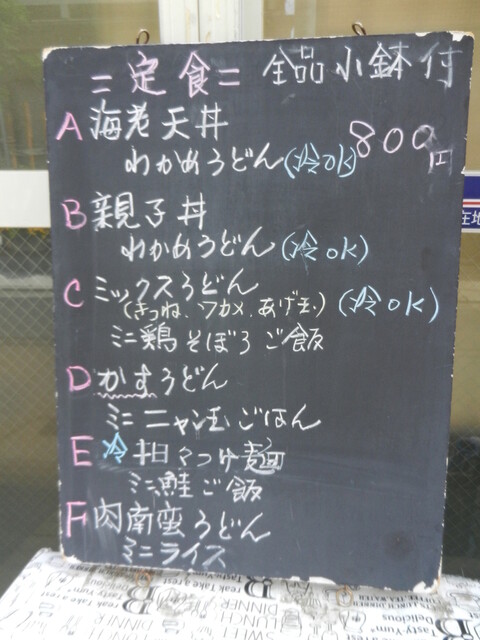 =定食= 全品小鉢付
A 海老天丼 800円
わかめうどん(冷OK)
B 親子丼
わかめうどん(冷OK)
C ミックスうどん
(きつね、ワカメ、あげ玉) (冷OK)
ミニ鶏そぼろご飯
D かすうどん
ミニニャン玉ごはん
E 冷 つけ麺
ミニ鮭ご飯
F 肉南蛮うどん
ミニライス
在地